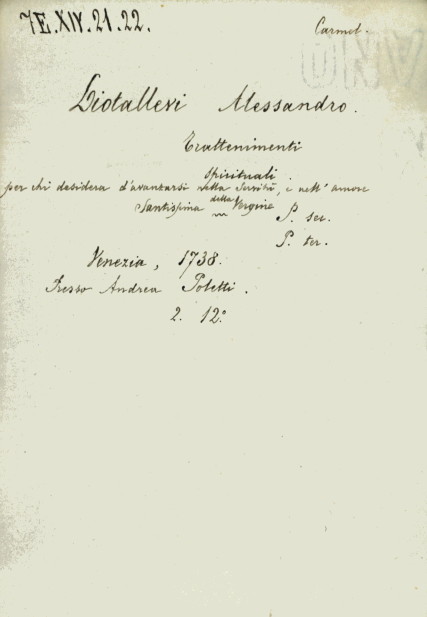 7E.XIV.21.22.
Carmel.
Diotallevi Alessandro.
Trattenimenti
spirituali.
per chi desidera d'avanzarsi nella servitù, e nell' amore
Santissima della Vergine
P. sec.
P. ter.
Venezia, 1738.
Presso Andrea Poletti.
2. 12°